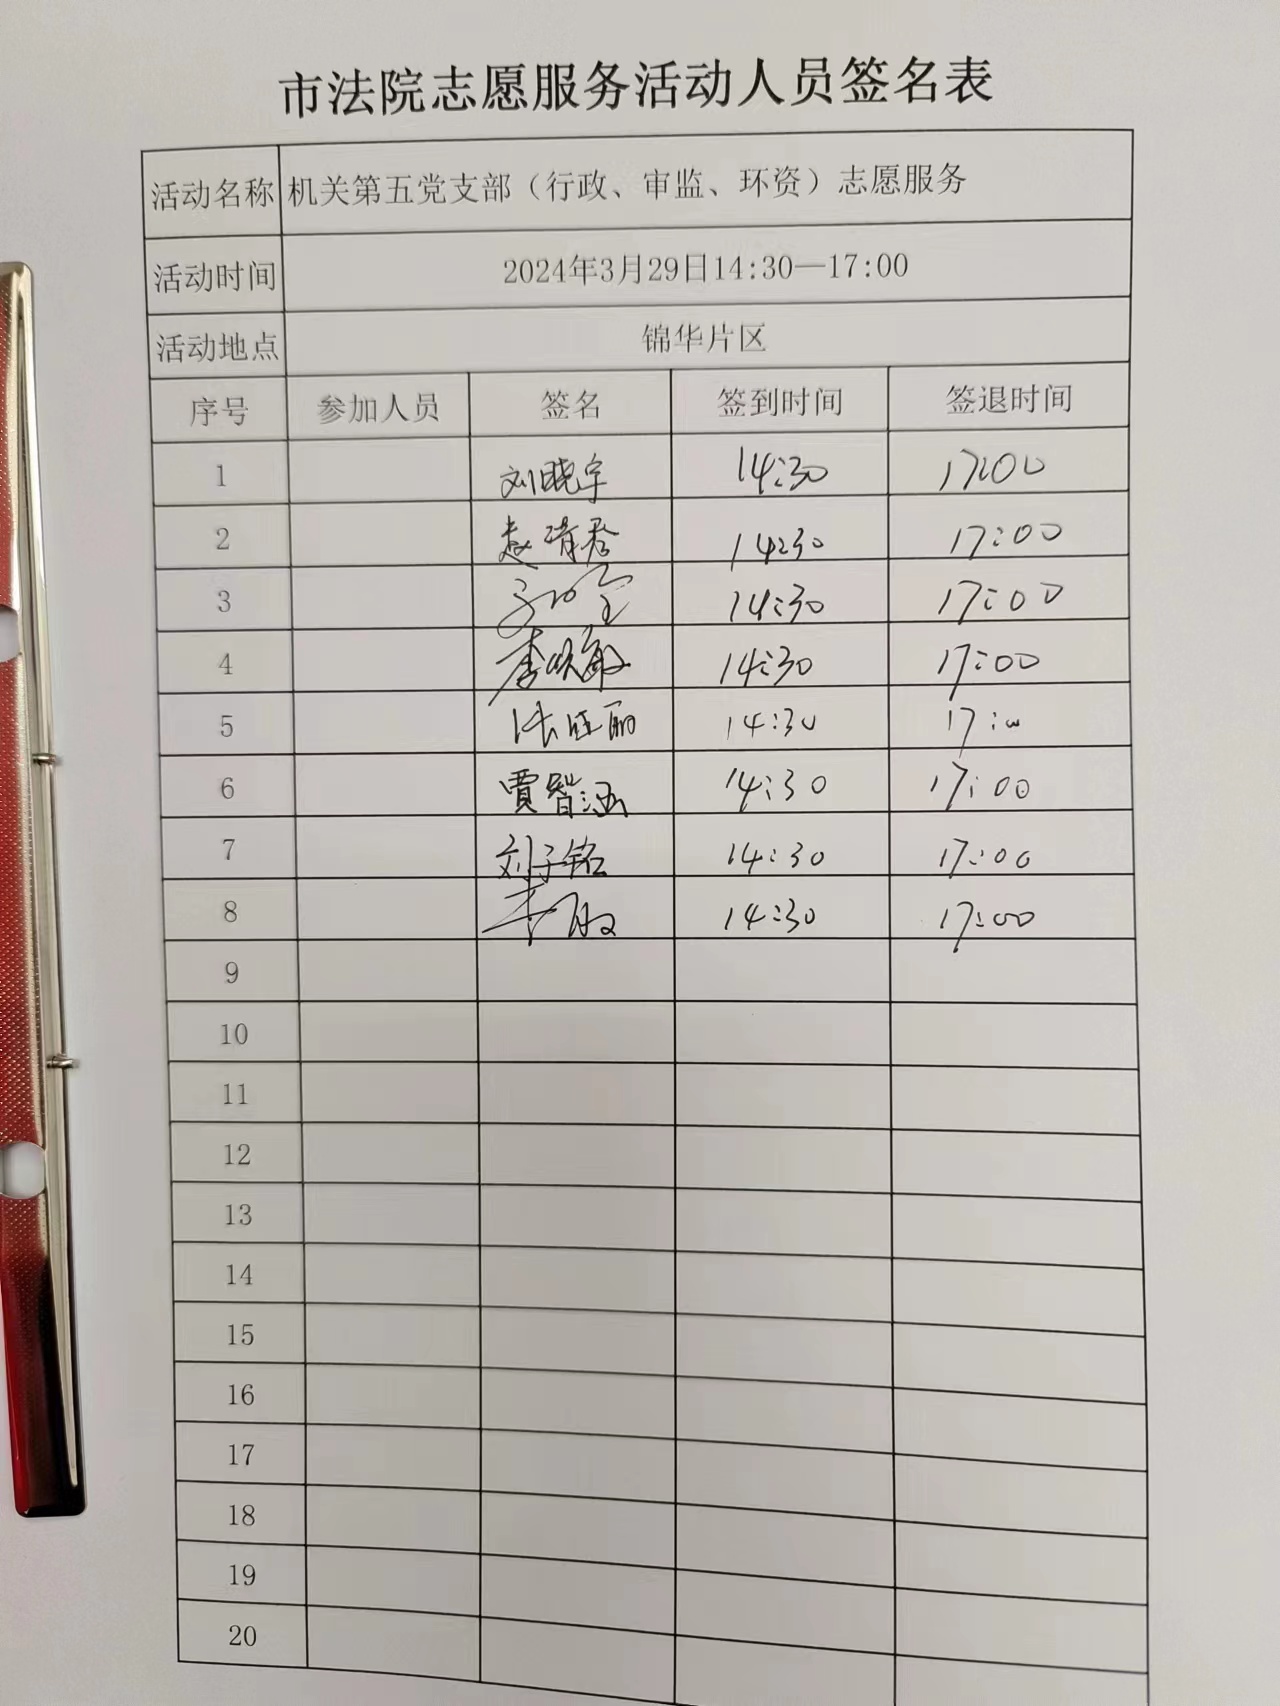 市法院志愿服务活动人员签名表
活动名称 机关第五党支部（行政、审监、环资）志愿服务
活动时间 2024年3月29日14:30—17:00
活动地点 锦华片区
序号 参加人员 签名 签到时间 签退时间
1 刘晓宇 14:30 17:00
2 赵清君 14:30 17:00
3 14:30 17:00
4 14:30 17:00
5 14:30 17:00
6 贾智涵 14:30 17:00
7 刘子铭 14:30 17:00
8 李敏 14:30 17:00
9
10
11
12
13
14
15
16
17
18
19
20